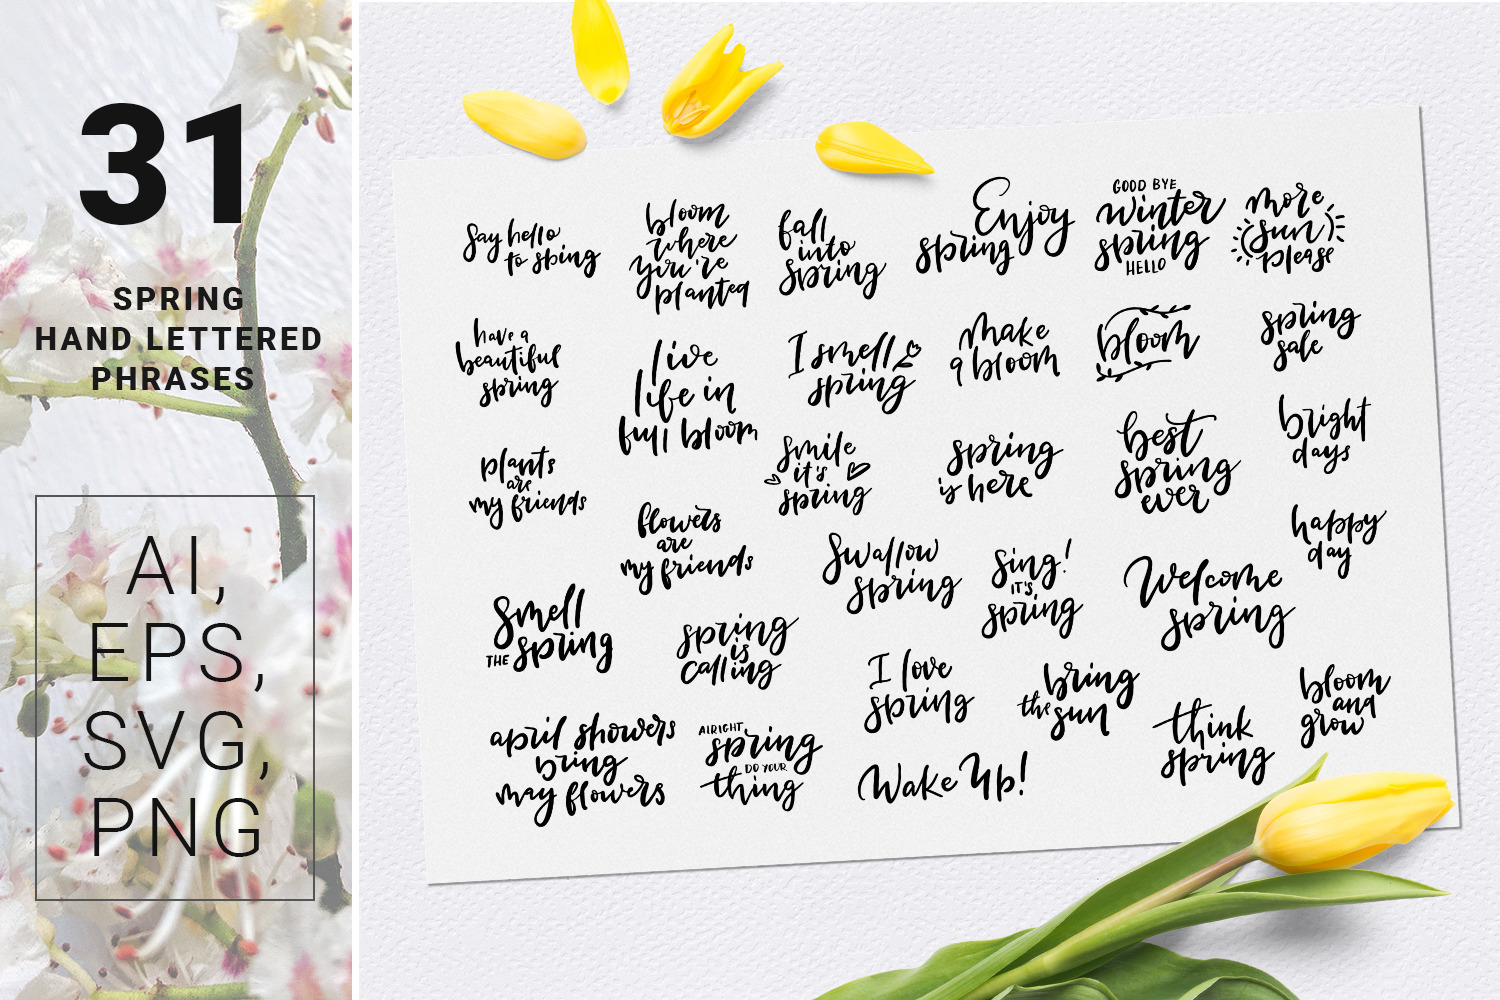 31
SPRING
HAND LETTERED
PHRASES
AI,
EPS,
SVG,
PNG
Say hello
to sping
bloom
where
you're
planted
fall
into
spring
Enjoy
spring
GOOD BYE
winter
spring
HELLO
more
sun
please
have a
beautiful
spring
live
life in
full bloom
I smell
spring
make
a bloom
bloom
spring
sale
plants
are
my friends
flowers
are
my friends
smile
it's
spring
spring
is here
best
spring
ever
bright
days
happy
day
Smell
THE spring
spring
is
calling
Swallow
spring
Sing!
IT'S
spring
Welcome
spring
april showers
bring
may flowers
ALRIGHT
spring
DO YOUR
thing
I love
spring
bring
the sun
Wake Up!
think
spring
bloom
and
grow